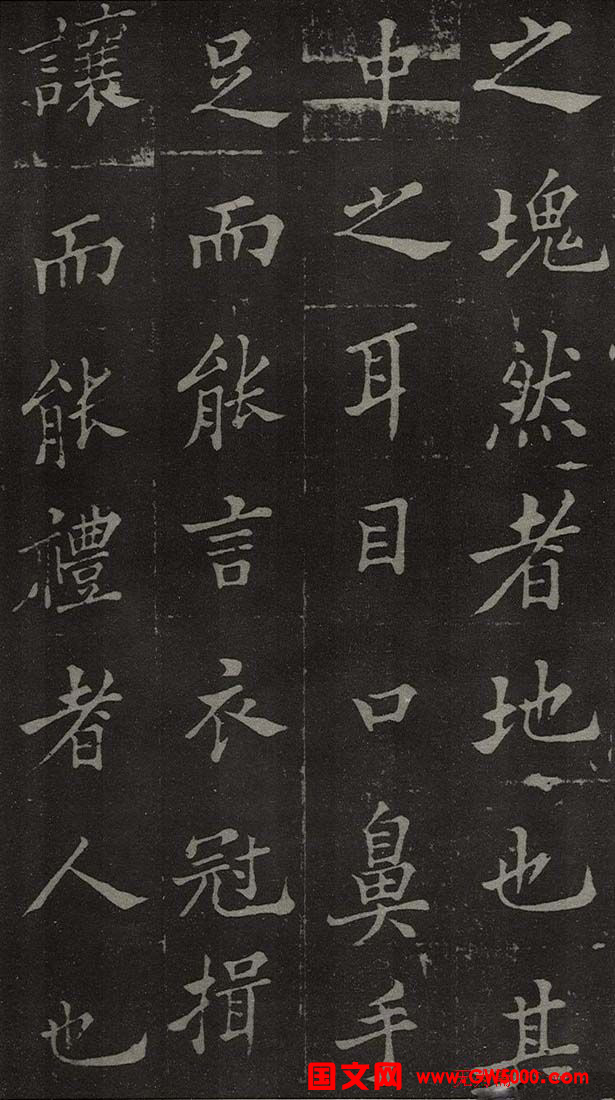 之塊然者地也其
中之耳目口鼻手
足而能言衣冠揖
讓而能禮者人也
国文网 www.GW5000.com